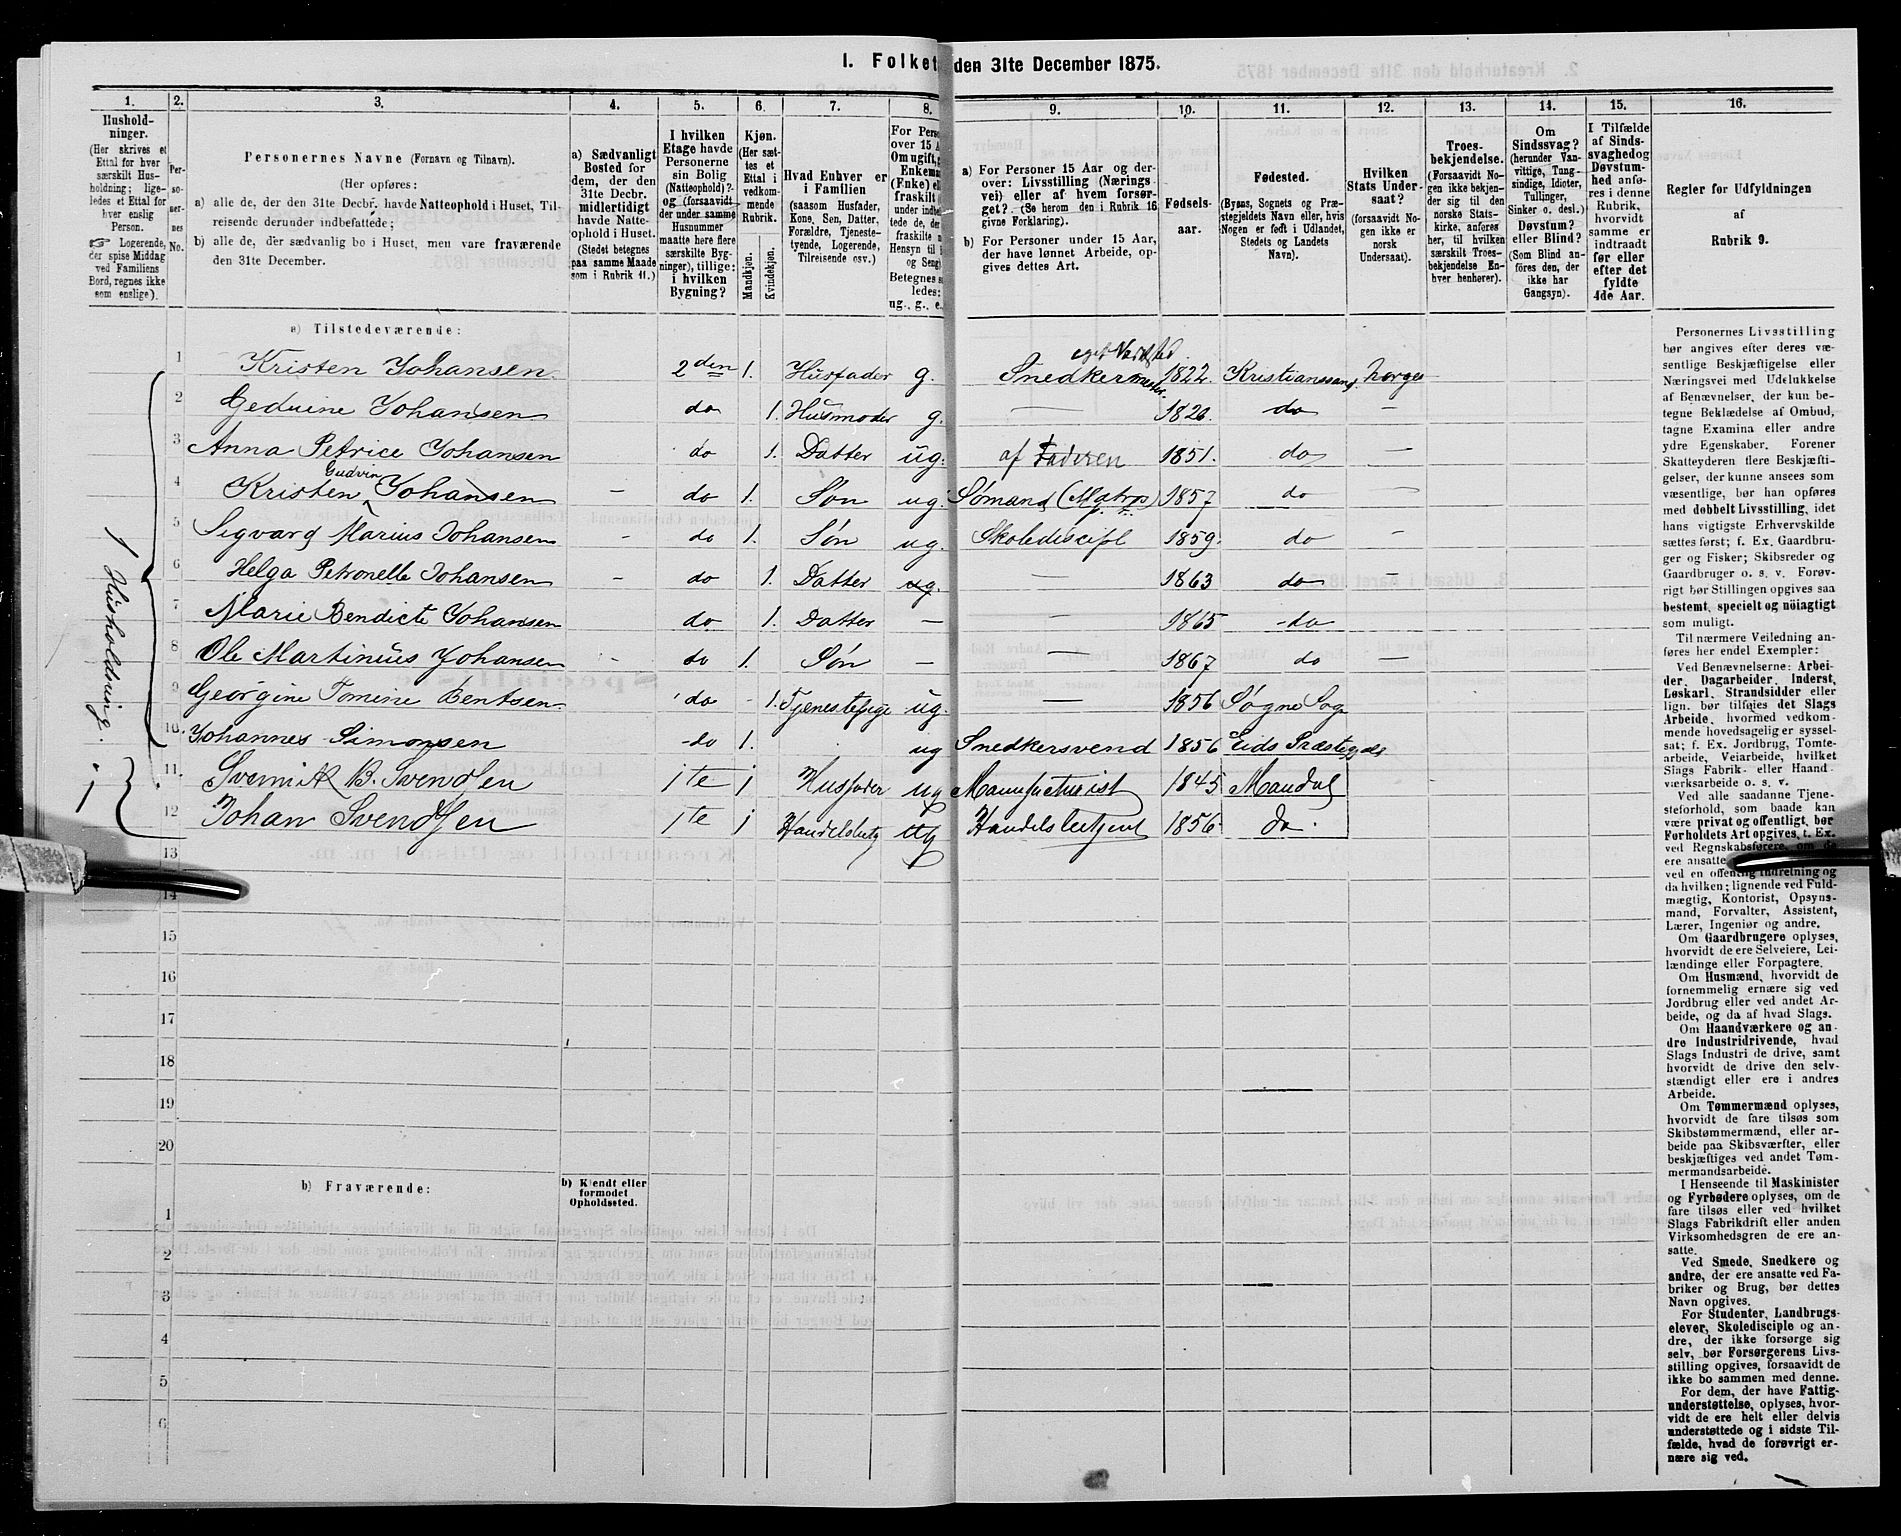 1. Folket den 31te December 1875.
1. 2. 3. 4. 5. 6. 7. 8. 9. 10. 11. 12. 13. 14. 15. 16.
Hushold-
ninger.
(Her skrives et
Ettal for hver
særskilt Hus-
holdning; lige-
ledes et Ettal for
hver enslig
Person.
Logerende,
der spise Middag
ved Familiens
Bord, regnes ikke
som enslige).
Per-
so-
ner-
nes
No.
Personernes Navne (Fornavn og Tilnavn).
(Her opføres:
a) alle de, der den 31te Decbr. havde Natteophold i Huset, Til-
reisende derunder indbefattede;
b) alle de, der sædvanlig bo i Huset, men vare fraværende
den 31te December.
a) Sædvanligt
Bosted for
dem, der den
31te Decbr.
midlertidigt
havde Natte-
ophold i Huset.
(Stedet betegnes
paa samme Maade
som i Rubrik 11.)
I hvilken
Etage havde
Personerne
sin Bolig
(Natteophold)?
og (forsaavidt
der under samme
Husnummer
maatte here flere
særskilte Byg-
ninger), tillige:
i hvilken
Bygning?
Kjøn.
(Her sæt-
tes et
Ettal i
vedkom-
mende
Rubrik.
Mandkjøn.
Kvindekjøn.
Hvad Enhver er
i Familien
(saasom Husfader,
Kone, Søn, Datter,
Forældre, Tjeneste-
tyende, Logerende,
Tilreisende osv.)
For Pers
over 15 A
Om ugift, g
Enkema
(Enke) el
fraskilt
under indb
tede de, der
fraskilte
Hensyn til
og Seng)
Betegnes s
ledes:
ug., g., e.
a) For Personer 15 Aar og der-
over: Livsstilling (Nærings
vei) eller af hvem forsør-
get? (Se herom den i Rubrik 16
givne Forklaring).
b) For Personer under 15 Aar,
der have lønnet Arbeide, op-
gives dettes Art.
Fødsels-
aar.
Fødested.
(Byens, Sognets og Præ-
stegjeldets Navn eller, hvis
Nogen er født i Udlandet,
Stedets og Landets
Navn).
Hvilken
Stats Under-
saat?
(forsaavidt No-
gen ikke er
norsk
Undersaat).
Troes-
bekjendelse.
(Forsaavidt No-
gen ikke bekjen-
der sig til den
norske Stats-
kirke, anføres
her, til hvilken
særskilt Troes-
bekjendelse En-
hver henhører).
Om
Sindssvag?
(herunder Van-
vittige, Tung-
sindige, Idioter,
Tullinger,
Sinker o. desl.)
Døvstum?
eller Blind?
(Som Blind an-
føres den, der
ikke har
Gangsyn).
I Tilfælde
af Sinds-
svaghed og
Døvstum-
hed anfø-
res i denne
Rubrik,
hvorvidt
samme er
indtraadt
før eller
efter det
fyldte
4de Aar.
Regler for Udfyldningen
af
Rubrik 9.
a) Tilstedeværende:
1 Kristen Johansen. 2den 1. Husfader g. Snedkermester eget Værksted 1822. Kristianssand Norges
2 Geduine Johansen do 1. Husmoder g. — 1820. do —
3 Anna Petrice Johansen do 1. Datter ug. af Faderen 1851. do —
4 Kristen Gudvin Johansen - do 1. Søn ug. Sømand (Matros) 1857 do —
5 Sigvard Marius Johansen - do 1. Søn ug. Skolediscipel 1859. do —
6 Helga Petronelle Johansen - do 1. Datter ug. — 1863 do —
7 Marie Bendicte Johansen do 1. Datter — — 1865 do —
8 Ole Martinius Johansen - do 1. Søn — — 1867 do —
9 Georgine Tomine Bentsen. do 1. Tjenestepige ug. 1856 Søgne Sog
10. Johannes Simonsen do 1. ug Snedkersvend 1856 Eids Præstegjæl
11. B. Svendsen 1te 1 Husfader ug Manufacturist 1845 Mandal
12 Johan Svendsen 1te 1 Handelsbetj ug Handelsbetjent 1856 do.
1 Husholdning.
1
13
14
15
16
17
18
19
20
b) Fraværende:
b) Kjendt eller
formodet
Opholdssted.
1
2
3
4
5
6
Personernes Livsstilling
bør angives efter deres væ-
sentlige Beskjæftigelse eller
Næringsvei med Udelukkelse
af Benævnelser, der kun be-
tegne Beklædelse af Ombud,
tagne Examina eller andre
ydre Egenskaber. Forener
Skatteyderen flere Beskjæfti-
gelser, der kunne ansees som
væsentlige, bør han opføres
med dobbelt Livsstilling, idet
hans vigtigste Erhvervskilde
sættes først; f. Ex. Gaardbru-
ger og Fisker; Skibsreder og
Gaardbruger o. s. v. Forøv-
rigt bør Stillingen opgives saa
bestemt, specielt og nöiagtigt
som muligt.
Til nærmere Veiledning an-
føres her endel Exempler:
Ved Benævnelserne: Arbei-
der, Dagarbeider, Inderst,
Løskarl, Strandsidder eller
lign. bør tilføies det Slags
Arbeide, hvormed vedkom-
mende hovedsagelig er syssel-
sat; f. Ex. Jordbrug, Tomte-
arbeide, Veiarbeide, hvilket
Slags Fabrik- eller Haand-
værksarbeide o. s. v.
Ved alle saadanne Tjene-
steforhold, som baade kan
være privat og offentligt, bør
Forholdets Art opgives, t. Ex.
ved Regnskabsførere, om de
ere ansatte
ved en offentlig Indretning og
da hvilken; lignende ved Fuld-
mægtig, Kontorist, Opsyns-
mand, Forvalter, Assistent,
Lærer, Ingeniør og andre.
Om Gaardbrugere oplyses,
hvorvidt de ere Selveiere, Lei-
lændinge eller Forpagtere.
Om Husmænd, hvorvidt de
fornemmelig ernære sig ved
Jordbrug eller ved andet Ar-
beide, og da af hvad Slags.
Om Haandværkere og an-
dre Industridrivende, hvad
Slags Industri de drive, samt
hvorvidt de drive den selv-
stændigt eller ere i andres
Arbeide.
Om Tømmermænd oplyses,
hvorvidt de fare tilsøs som
Skibstømmermænd, eller ar-
beide paa Skibsværfter, eller
beskjæftiges ved andet Tøm-
mermandsarbeide.
I Henseende til Maskinister
og Fyrbødere oplyses, om de
fare tilsøs eller ved hvilket
Slags Fabrikdrift eller anden
Virksomhedsgren de ere an-
satte.
Ved Smede, Snedkere og
andre, der ere ansatte ved Fa-
briker og Brug, bør dettes
Navn opgives.
For Studenter, Landbrugs-
elever, Skoledisciple og an-
dre, der ikke forsørge sig
selv, bør Forsørgerens Livs-
stilling opgives, forsaavidt de
ikke bo sammen med denne.
For dem, der have Fattig-
understøttelse, oplyses, hvor-
vidt de ere helt eller delvis
understøttede og i sidste Til-
fælde, hvad de forøvrigt er-
nære sig ved.